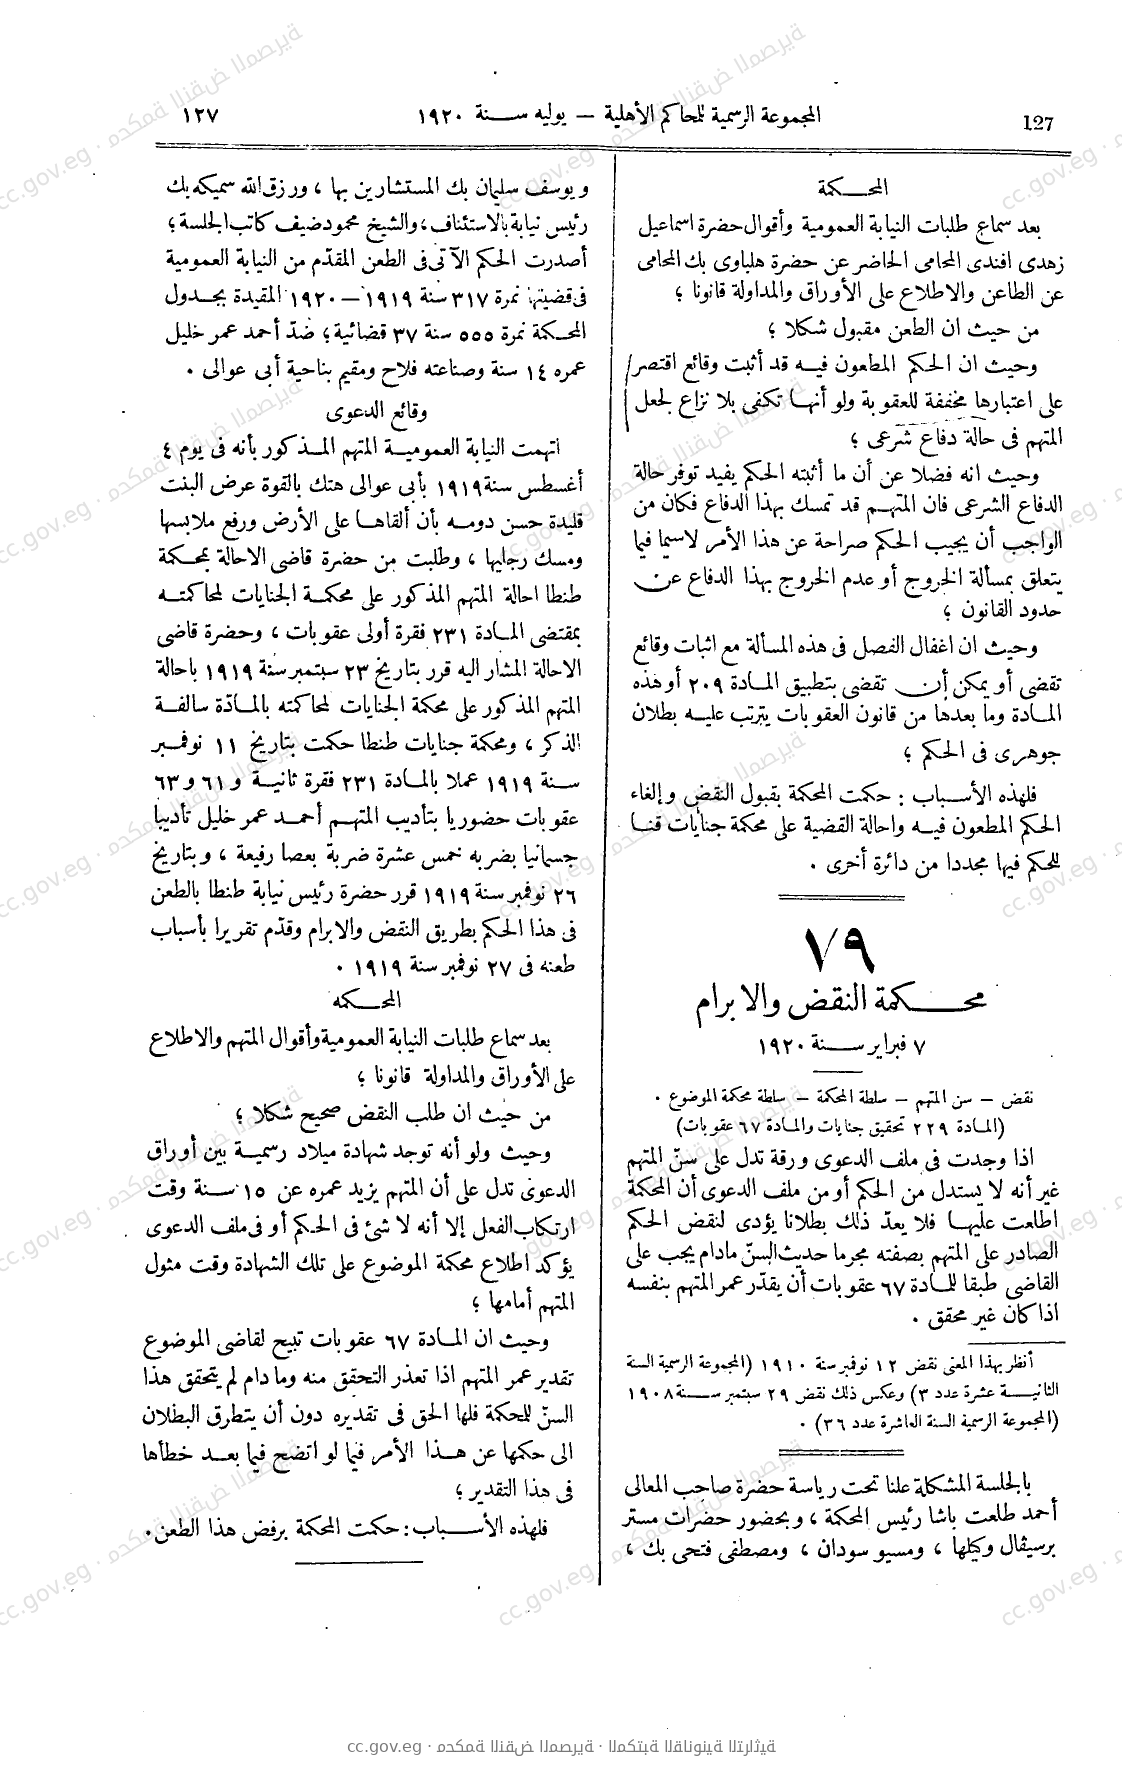 127
المجموعة الرسمية للمحاكم الأهلية — يوليه سنة ١٩٢٠
١٢٧
المحكمة
بعد سماع طلبات النيابة العمومية وأقوال حضرة اسماعيل
زهدى افندى المحامى الحاضر عن حضرة هلباوى بك المحامى
عن الطاعن والاطلاع على الأوراق والمداولة قانونا ؛
من حيث ان الطعن مقبول شكلا ؛
وحيث ان الحكم المطعون فيه قد أثبت وقائع اقتصر
على اعتبارها مخففة للعقوبة ولو أنها تكفى بلا نزاع لجعل
المتهم فى حالة دفاع شرعى ؛
وحيث انه فضلا عن أن ما أثبته الحكم يفيد توفر حالة
الدفاع الشرعى فان المتهم قد تمسك بهذا الدفاع فكان من
الواجب أن يجيب الحكم صراحة عن هذا الأمر لاسيما فيما
يتعلق بمسألة الخروج أو عدم الخروج بهذا الدفاع عن
حدود القانون ؛
وحيث ان اغفال الفصل فى هذه المسألة مع اثبات وقائع
تقضى أو يمكن أن تقضى بتطبيق المادة ٢٠٩ أو هذه
المادة وما بعدها من قانون العقوبات يترتب عليه بطلان
جوهرى فى الحكم ؛
فلهذه الأسباب : حكمت المحكمة بقبول النقض و إلغاء
الحكم المطعون فيه واحالة القضية على محكمة جنايات قنا
للحكم فيها مجددا من دائرة أخرى .
٧٩
محكمة النقض والابرام
٧ فبراير سنة ١٩٢٠
نقض — سن المتهم — سلطة المحكمة — سلطة محكمة الموضوع .
(المادة ٢٢٩ تحقيق جنايات والمادة ٦٧ عقوبات)
اذا وجدت فى ملف الدعوى ورقة تدل على سنّ المتهم
غير أنه لا يستدل من الحكم أو من ملف الدعوى أن المحكمة
اطلعت عليها فلا يعدّ ذلك بطلانا يؤدى لنقض الحكم
الصادر على المتهم بصفته مجرما حديث السنّ مادام يجب على
القاضى طبقا للمادة ٦٧ عقوبات أن يقدّر عمر المتهم بنفسه
اذا كان غير محقق .
أنظر بهذا المعنى نقض ١٢ نوفمبر سنة ١٩١٠ (المجموعة الرسمية السنة
الثانية عشرة عدد ٣) وعكس ذلك نقض ٢٩ سبتمبر سنة ١٩٠٨
(المجموعة الرسمية السنة العاشرة عدد ٣٦) .
بالجلسة المشكلة علنا تحت رياسة حضرة صاحب المعالى
أحمد طلعت باشا رئيس المحكمة ، وبحضور حضرات مستر
برسيڤال وكيلها ، ومسيو سودان ، ومصطفى فتحى بك ،
و يوسف سليمان بك المستشارين بها ، ورزق الله سميكه بك
رئيس نيابة بالاستئناف ، والشيخ محمود ضيف كاتب الجلسة ؛
أصدرت الحكم الآتى فى الطعن المقدّم من النيابة العمومية
فى قضيتها نمرة ٣١٧ سنة ١٩١٩ — ١٩٢٠ المقيدة بجدول
المحكمة نمرة ٥٥٥ سنة ٣٧ قضائية ؛ ضدّ أحمد عمر خليل
عمره ١٤ سنة وصناعته فلاح ومقيم بناحية أبى عوالى .
وقائع الدعوى
اتهمت النيابة العمومية المتهم المذكور بأنه فى يوم ٤
أغسطس سنة ١٩١٩ بأبى عوالى هتك بالقوة عرض البنت
قليدة حسن دومه بأن ألقاها على الأرض ورفع ملابسها
ومسك رجليها ، وطلبت من حضرة قاضى الاحالة بمحكمة
طنطا احالة المتهم المذكور على محكمة الجنايات لمحاكمته
بمقتضى المادة ٢٣١ فقرة أولى عقوبات ، وحضرة قاضى
الاحالة المشار اليه قرر بتاريخ ٢٣ سبتمبر سنة ١٩١٩ باحالة
المتهم المذكور على محكمة الجنايات لمحاكمته بالمادّة سالفة
الذكر ، ومحكمة جنايات طنطا حكمت بتاريخ ١١ نوفمبر
سنة ١٩١٩ عملا بالمادة ٢٣١ فقرة ثانية و ٦١ و ٦٣
عقوبات حضوريا بتأديب المتهم أحمد عمر خليل تأديبا
جسمانيا بضربه خمس عشرة ضربة بعصا رفيعة ، وبتاريخ
٢٦ نوفمبر سنة ١٩١٩ قرر حضرة رئيس نيابة طنطا بالطعن
فى هذا الحكم بطريق النقض والابرام وقدّم تقريرا بأسباب
طعنه فى ٢٧ نوفمبر سنة ١٩١٩ .
المحكمه
بعد سماع طلبات النيابة العمومية وأقوال المتهم والاطلاع
على الأوراق والمداولة قانونا ؛
من حيث ان طلب النقض صحيح شكلا ؛
وحيث ولو أنه توجد شهادة ميلاد رسمية بين أوراق
الدعوى تدل على أن المتهم يزيد عمره عن ١٥ سنة وقت
ارتكاب الفعل إلا أنه لا شئ فى الحكم أو فى ملف الدعوى
يؤكد اطلاع محكمة الموضوع على تلك الشهادة وقت مثول
المتهم أمامها ؛
وحيث ان المادة ٦٧ عقوبات تبيح لقاضى الموضوع
تقدير عمر المتهم اذا تعذر التحقق منه وما دام لم يتحقق هذا
السنّ للمحكمة فلها الحق فى تقديره دون أن يتطرق البطلان
الى حكمها عن هذا الأمر فيما لو اتضح فيما بعد خطأها
فى هذا التقدير ؛
فلهذه الأسباب : حكمت المحكمة برفض هذا الطعن .
cc.gov.eg · محكمة النقض المصرية · المكتبة القانونية التراثية